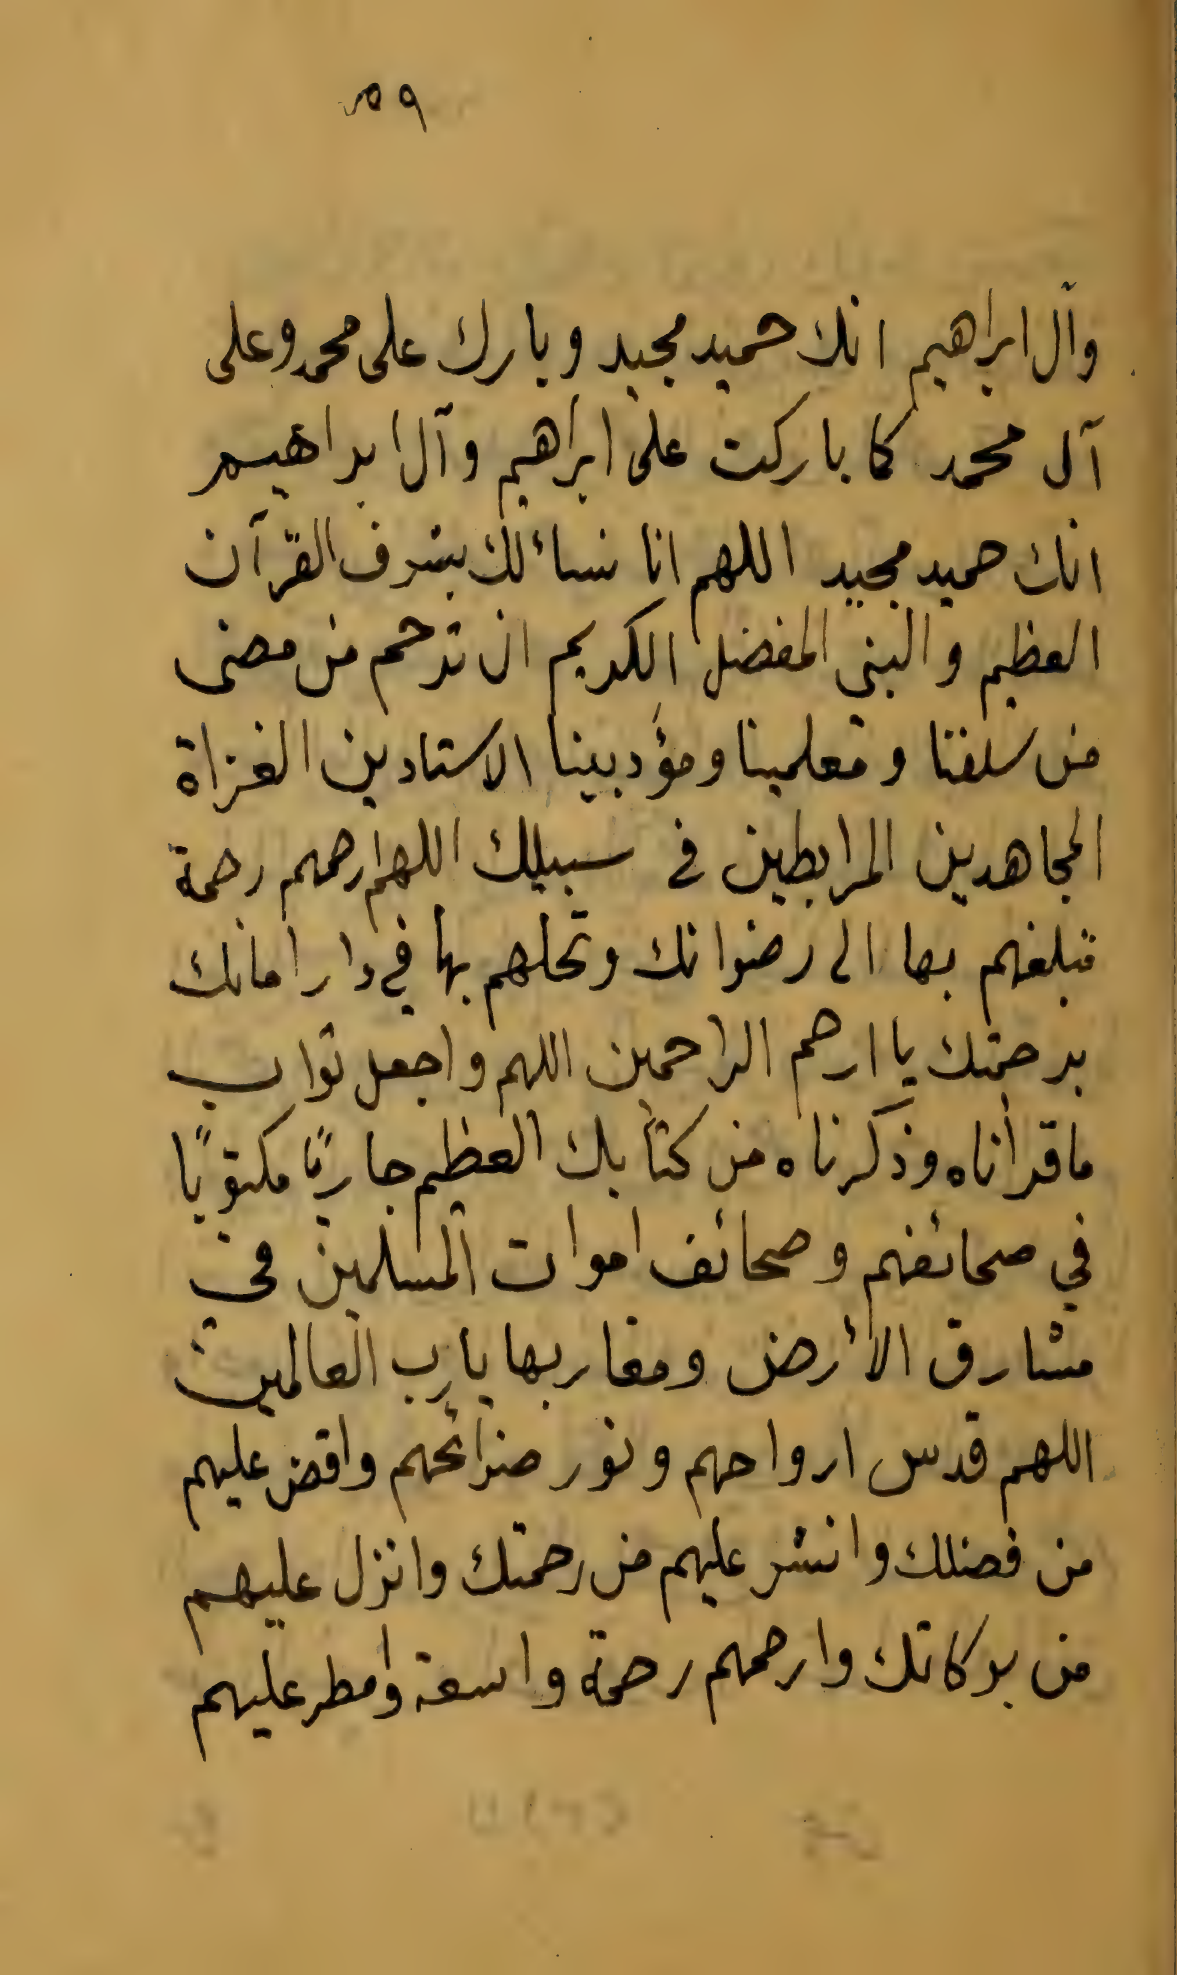 ٥٩
وآل ابراهيم انك حميد مجيد وبارك على محمد وعلى
آل محمد كما باركت على ابراهيم وآل ابراهيم
انك حميد مجيد اللهم انا نسائلك بشرف القرآن
العظيم والنبي المفضل الكريم ان ترحم من مضى
من سلفنا ومعلمينا ومؤدبينا الاستادين الغزاة
المجاهدين المرابطين في سبيلك اللهم ارحمهم رحمة
تبلغهم بها الى رضوانك وتحلهم بها في دار امانك
برحمتك يا ارحم الراحمين اللهم واجعل ثواب
ما قرأناه وذكرناه من كتابك العظيم جاريًا مكتوبًا
في صحائفهم وصحائف اموات المسلمين في
مشارق الأرض ومغاربها يارب العالمين
اللهم قدس ارواحهم ونور ضرائحهم وافض عليهم
من فضلك وانشر عليهم من رحمتك وانزل عليهم
من بركاتك وارحمهم رحمة واسعة وامطر عليهم